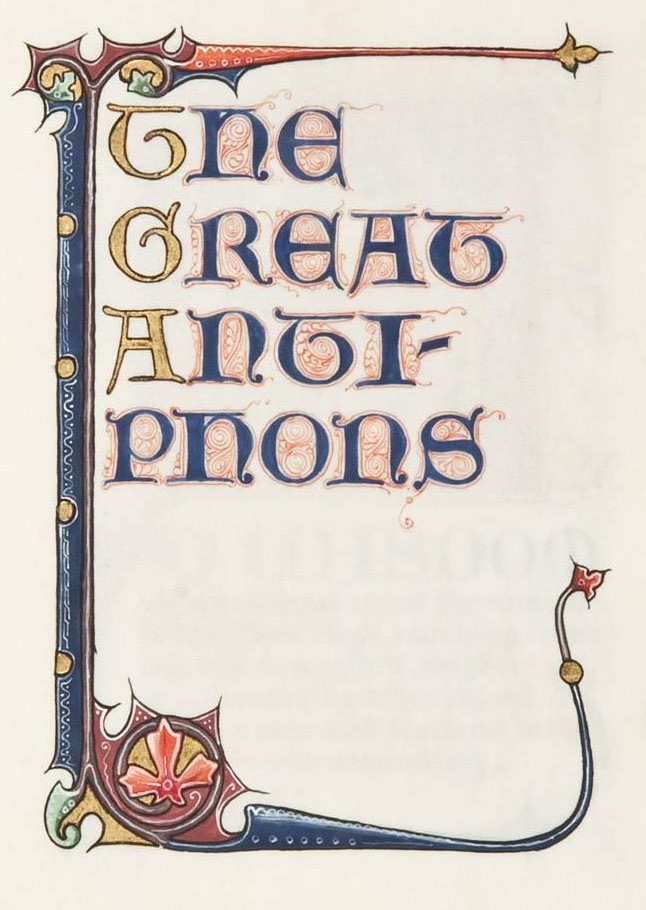 The
Great
Anti-
phons